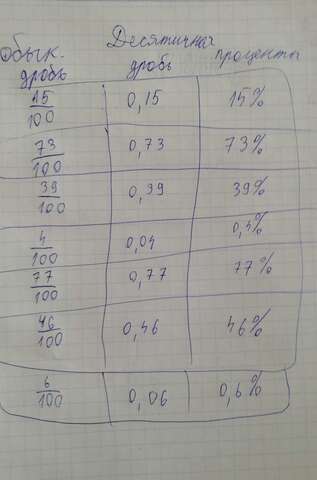 Обык. дробь Десятичная дробь проценты
15/100 0,15 15%
73/100 0,73 73%
39/100 0,39 39%
4/100 0,04 0,4%
77/100 0,77 77%
46/100 0,46 46%
6/100 0,06 0,6%